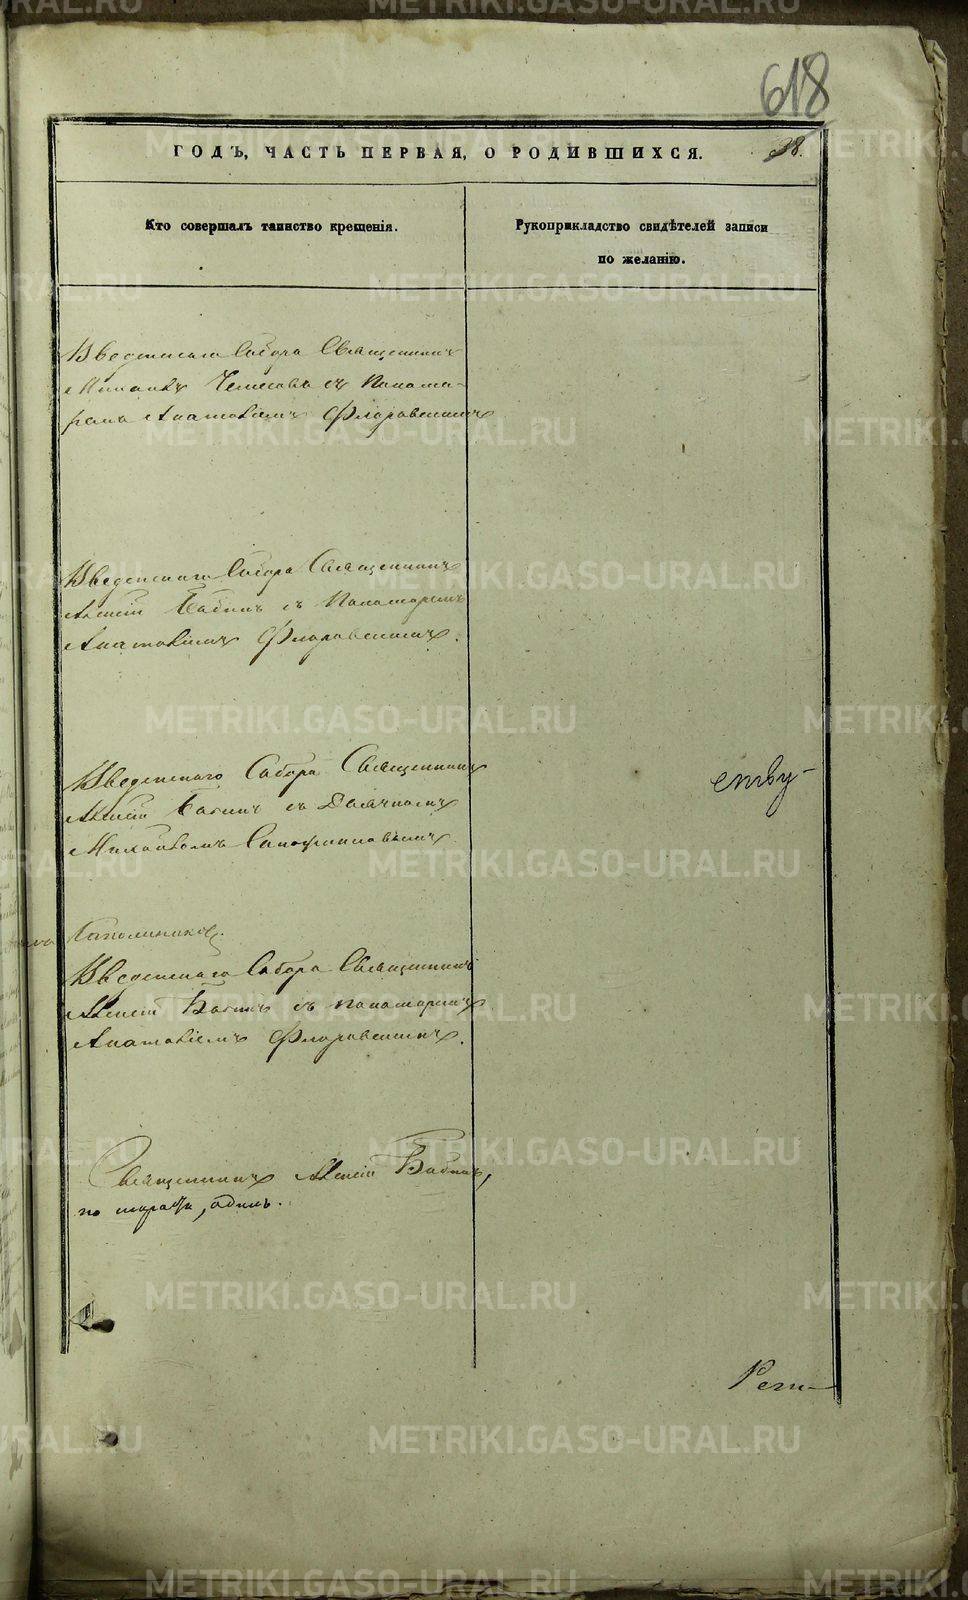 618
ГОДЪ, ЧАСТЬ ПЕРВАЯ, О РОДИВШИХСЯ.
38.
Кто совершалъ таинство крещенія.
Рукоприкладство свидѣтелей записи
по желанію.
Введенскаго Собора Священникъ
съ Понома-
ремъ Анатоліемъ Флоровскимъ
Введенскаго Собора Священникъ
Алексій Бабинъ съ Пономаремъ
Анатоліемъ Флоровскимъ.
Введенскаго Собора Священникъ
Алексій Бабинъ съ Дьячкомъ
Михаиломъ
ству-
Введенскаго Собора Священникъ
Алексій Бабинъ съ пономаремъ
Анатоліемъ Флоровскимъ.
Священникъ Алексій Бабинъ,
по одинъ.
METRIKI.GASO-URAL.RU